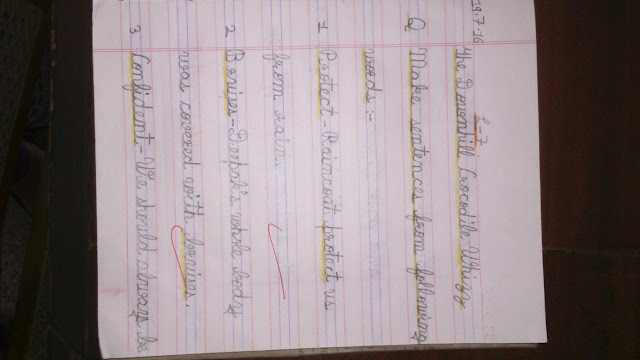 19.7.16
L-7
The Downhill Crocodile Whizz
Q Make sentences from following
words :-
1 Protect - Raincoat protect us
from rain.
2 Bruises - Deepak's whole body
was covered with bruises.
3 Confident - We should always be